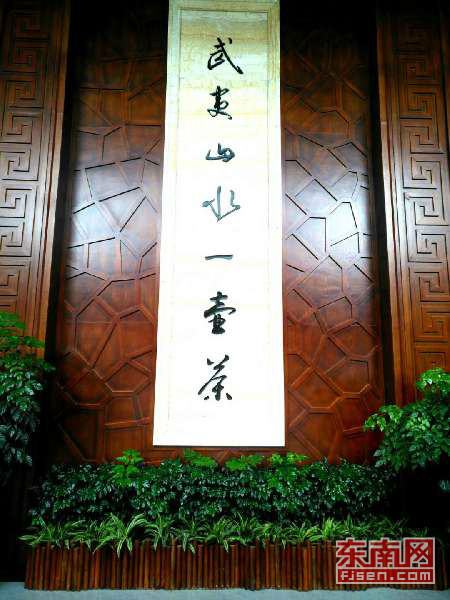 武夷山水一壶茶
东南网
FJSEN.COM